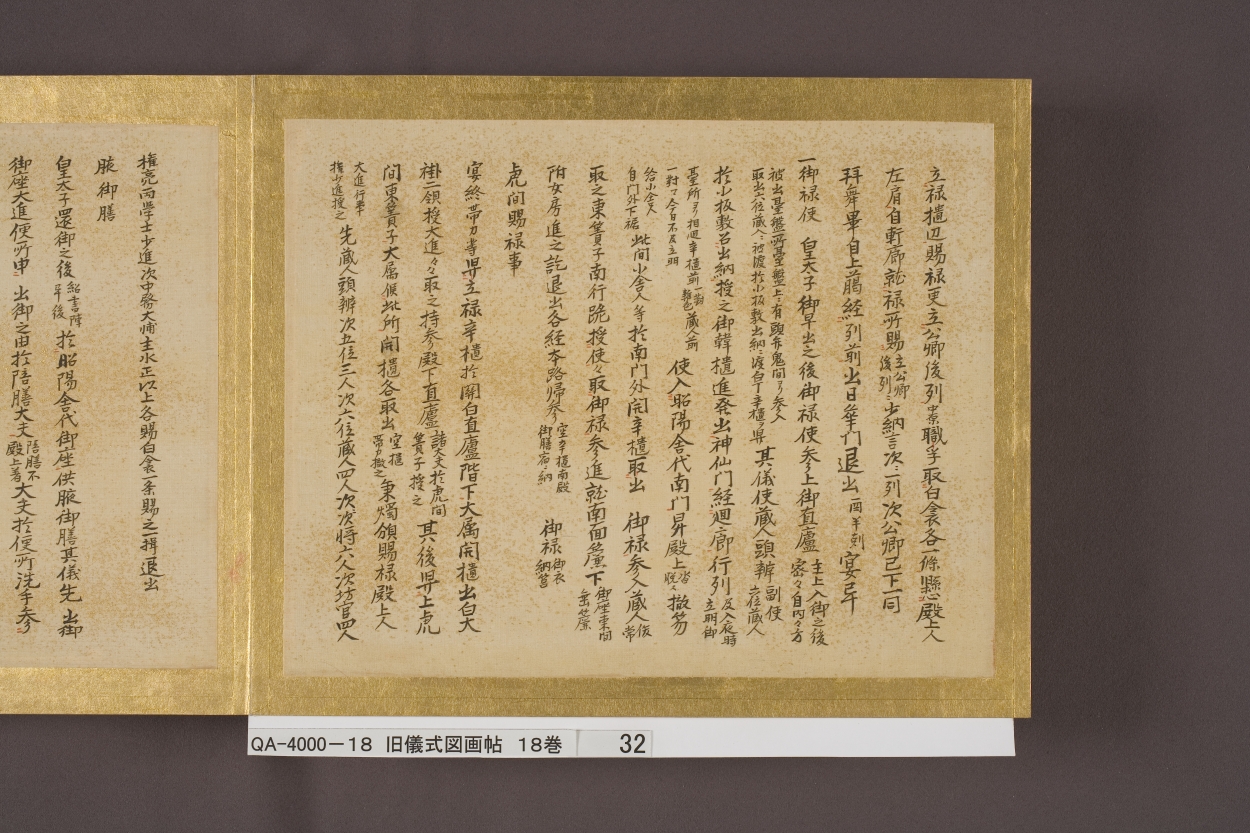 立禄樻辺賜禄更立公卿後列
職事取白衾各一條懸殿上人
左肩自軒廊就禄所賜立公卿後列少納言次一列次公卿已下一同
拜舞畢自上臈経列前出日華門退出酉半刻宴畢
一御禄使 皇太子御早出之後御禄使参上御直廬主上入御之後密々自内々方
被出臺盤所臺盤上有頭弁鬼間ヨリ参入
取出六位蔵人被渡於小板敷出納
其儀使蔵人頭辨副使六位蔵人
於小板敷召出納授之御韓樻進発出神仙门経廻廊行列及入夜時立明御
臺所ヨリ相迴辛樻前一對雜色蔵人前
一對今日不及立明
使入昭陽舎代南门昇殿上沓脱撤笏
給小舎人
自门外下裾
此间小舎人等於南门外开辛樻取出 御禄参入蔵人
取之東簀子南行跪授使々取御禄参進就南面簾下御座東间垂簾
附女房進之訖退出各経本路帰参空辛樻南殿御膳宿納 御禄御衣納筥
虎间賜禄事
宴終帯刀等舁立禄辛樻於關白直廬階下大属開樻出白大
褂二領授大進々々取之持参殿下直廬諸大夫於虎间簀子授之其後舁上虎
间東簀子大属候此所開樻各取出空樻帯刀撤之秉燭頒賜禄殿上人
大進行事
権少進授之
先蔵人頭辨次五位三人次六位蔵人四人次次將六人次坊官四人
権亮両學士少進次中務大輔主水正以上各賜白衾一条賜之一揖退出
腋御膳
皇太子還御之後於昭陽舎代御座供腋御膳其儀先出御
御座大進便所申 出御之由於陪膳大夫陪膳不殿上者大夫於便所洗手参
QA-4000-18 旧儀式図画帖 18巻 32